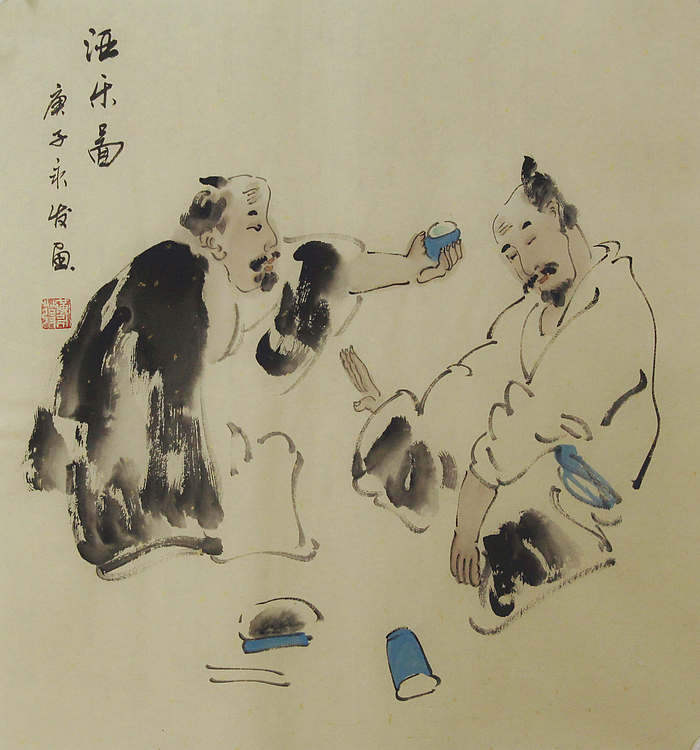 酒乐图
庚子永发画